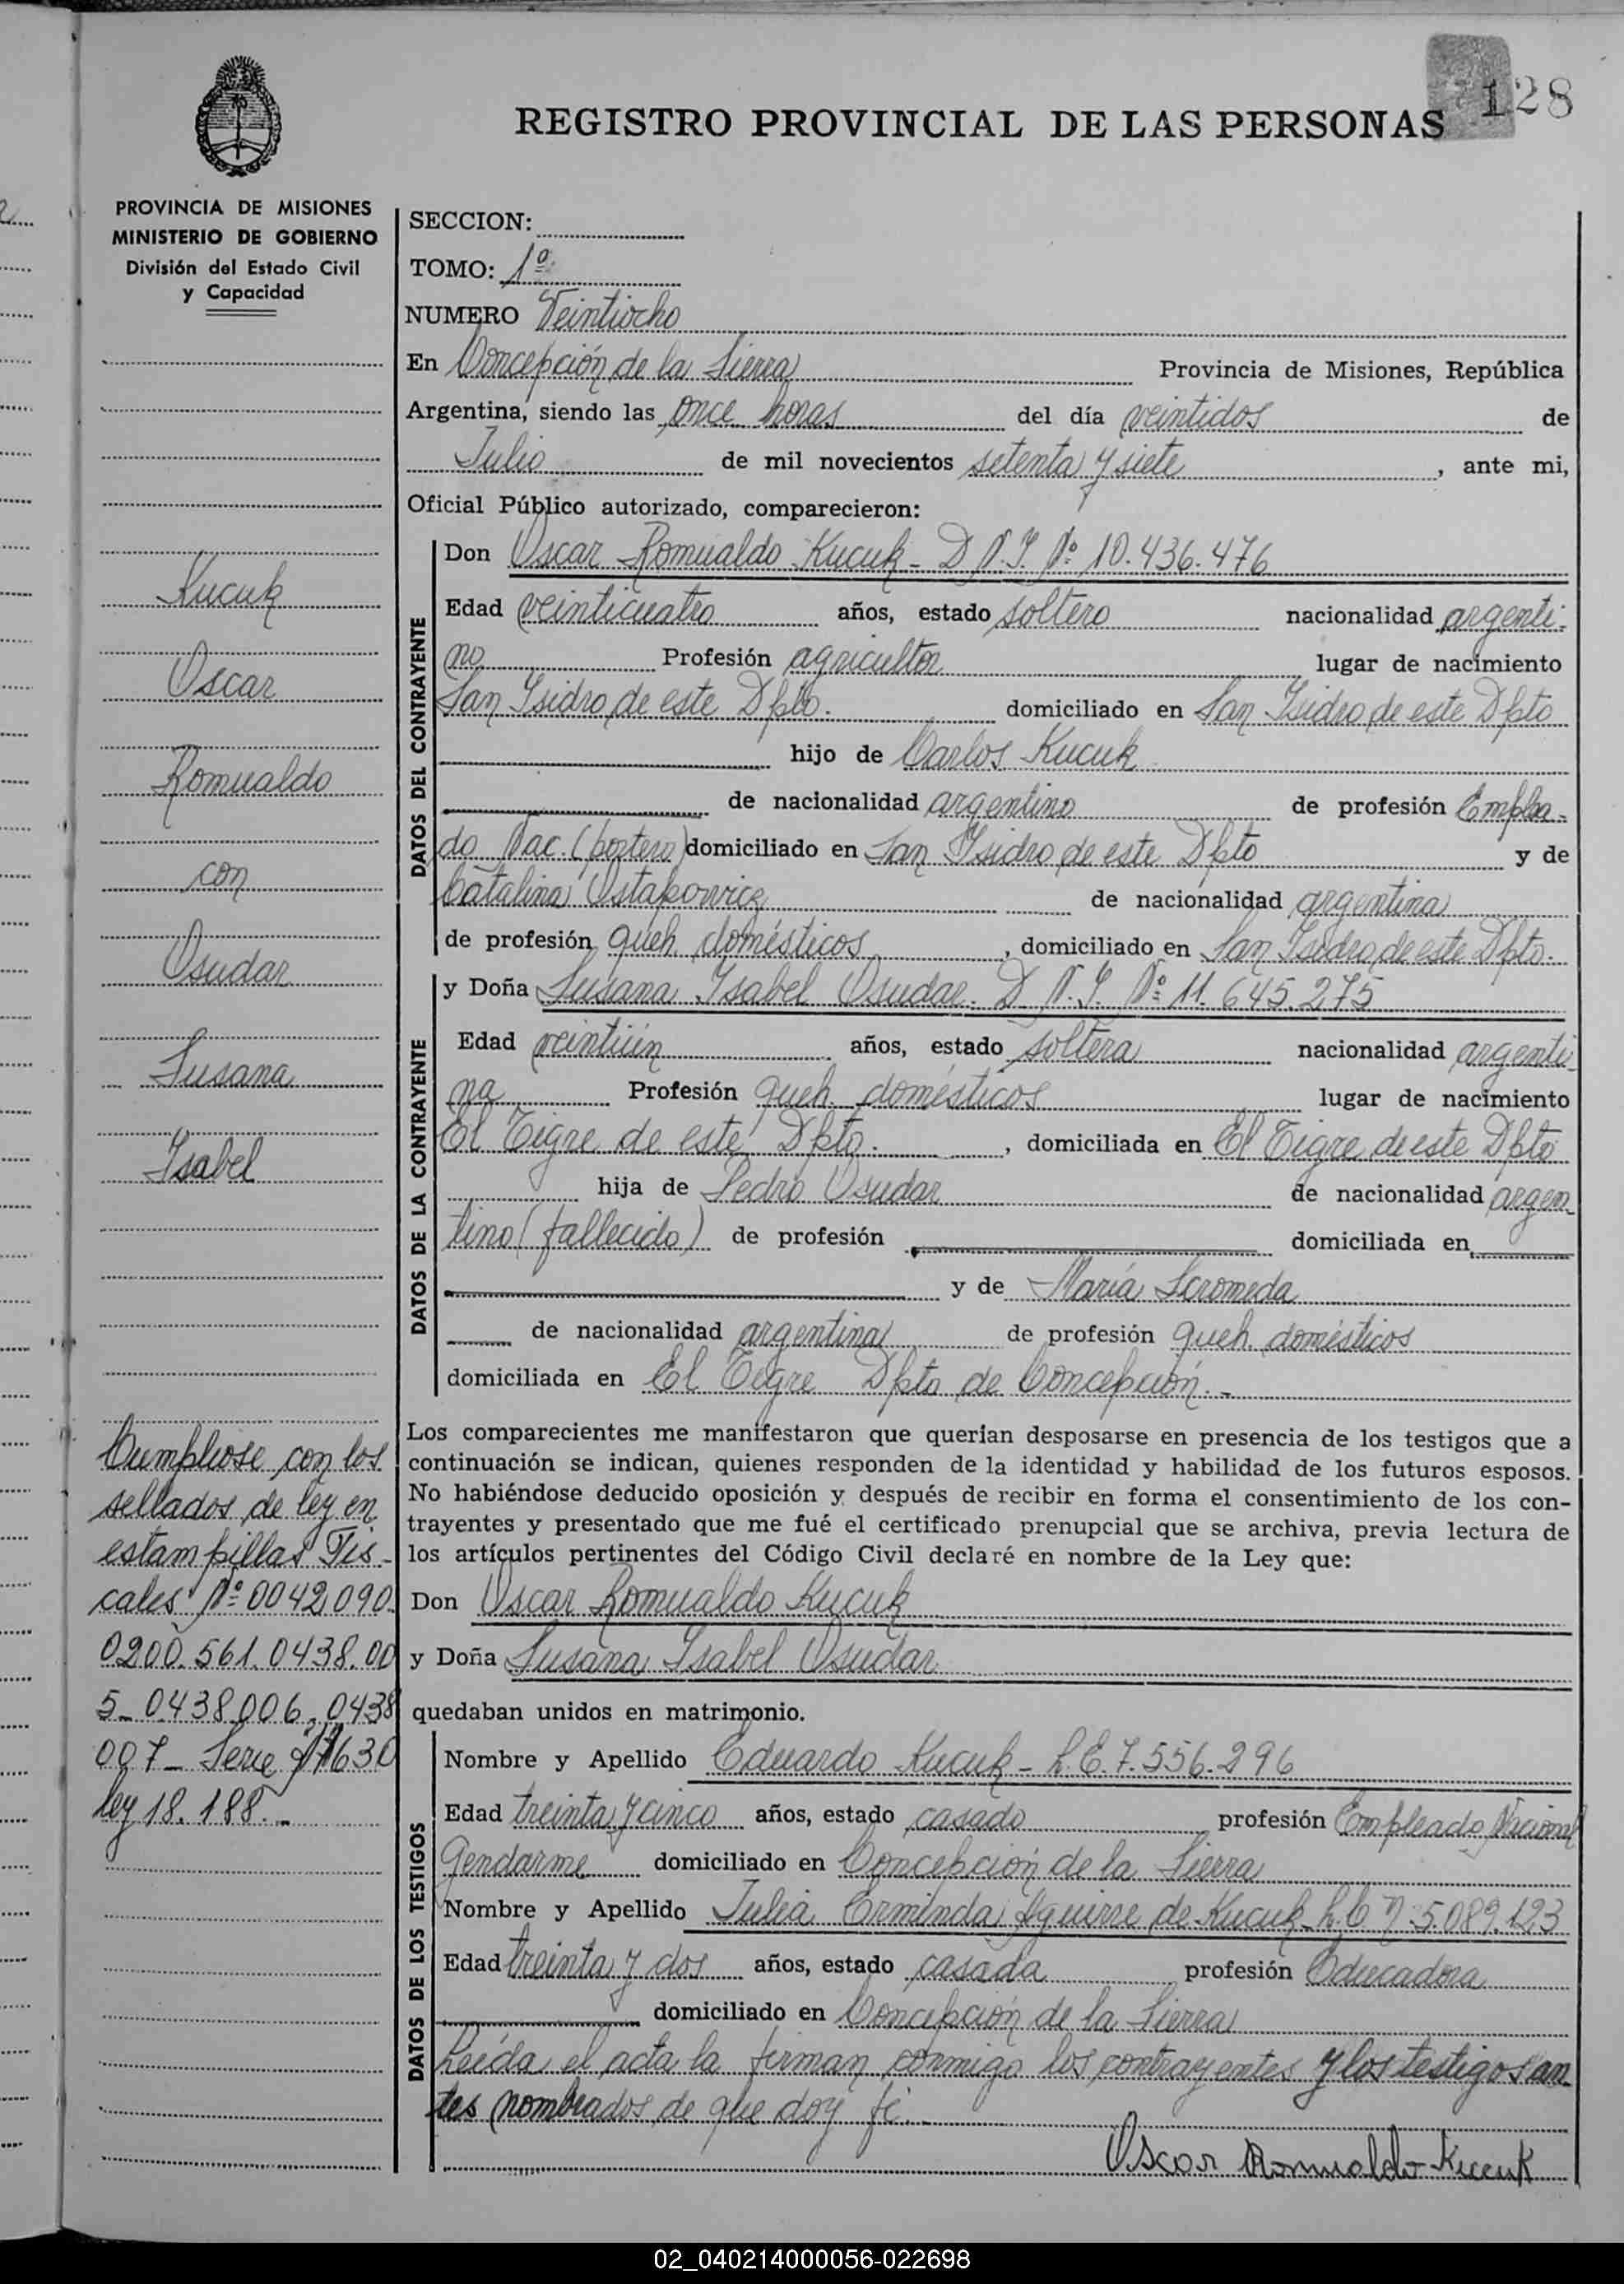 128
REGISTRO PROVINCIAL DE LAS PERSONAS
PROVINCIA DE MISIONES
MINISTERIO DE GOBIERNO
División del Estado Civil
y Capacidad
Kucuk
Oscar
Romualdo
con
Osudar
Susana
Isabel
Cumpliose con los
sellados de ley en
estampillas Fis-
cales Nº 0042090.
0200.561.0438.00
5_0438006,0438
007_ Serie 630
ley 18.188._
SECCION:
TOMO: 1º
NUMERO Veintiocho
En Concepción de la Sierra Provincia de Misiones, República
Argentina, siendo las once horas del día veintidos de
Julio de mil novecientos setenta y siete, ante mi,
Oficial Público autorizado, comparecieron:
DATOS DEL CONTRAYENTE
Don Oscar Romualdo Kucuk - D.N.I. Nº 10.436.476
Edad veinticuatro años, estado soltero nacionalidad argenti-
no Profesión agricultor lugar de nacimiento
San Isidro de este Dpto. domiciliado en San Isidro de este Dpto
hijo de Carlos Kucuk
de nacionalidad argentino de profesión Emplea-
do Nac. (portero) domiciliado en San Isidro de este Dpto y de
Catalina Ostapowicz de nacionalidad argentina
de profesión queh. domésticos, domiciliado en San Isidro de este Dpto.
DATOS DE LA CONTRAYENTE
y Doña Susana Isabel Osudar. D.N.I. Nº 11.645.275
Edad veintiún años, estado soltera nacionalidad argenti-
na Profesión queh. domésticos lugar de nacimiento
El Tigre de este Dpto., domiciliada en El Tigre de este Dpto
hija de Pedro Osudar de nacionalidad argen-
tino (fallecido) de profesión domiciliada en
y de María Scromeda
de nacionalidad argentina de profesión queh. domésticos
domiciliada en El Tigre Dpto de Concepción.-
Los comparecientes me manifestaron que querían desposarse en presencia de los testigos que a
continuación se indican, quienes responden de la identidad y habilidad de los futuros esposos.
No habiéndose deducido oposición y después de recibir en forma el consentimiento de los con-
trayentes y presentado que me fué el certificado prenupcial que se archiva, previa lectura de
los artículos pertinentes del Código Civil declaré en nombre de la Ley que:
Don Oscar Romualdo Kucuk
y Doña Susana Isabel Osudar
quedaban unidos en matrimonio.
DATOS DE LOS TESTIGOS
Nombre y Apellido Eduardo Kucuk - L.E. 7.556.296
Edad treinta y cinco años, estado casado profesión Empleado Nacional
Gendarme domiciliado en Concepción de la Sierra
Nombre y Apellido Julia Erminda Aguirre de Kucuk L.C. Nº 5.089.123
Edad treinta y dos años, estado casada profesión Educadora
domiciliado en Concepción de la Sierra
Leída el acta la firman conmigo los contrayentes y los testigos an-
tes nombrados de que doy fé.
Oscar Romualdo Kucuk
02_040214000056-022698